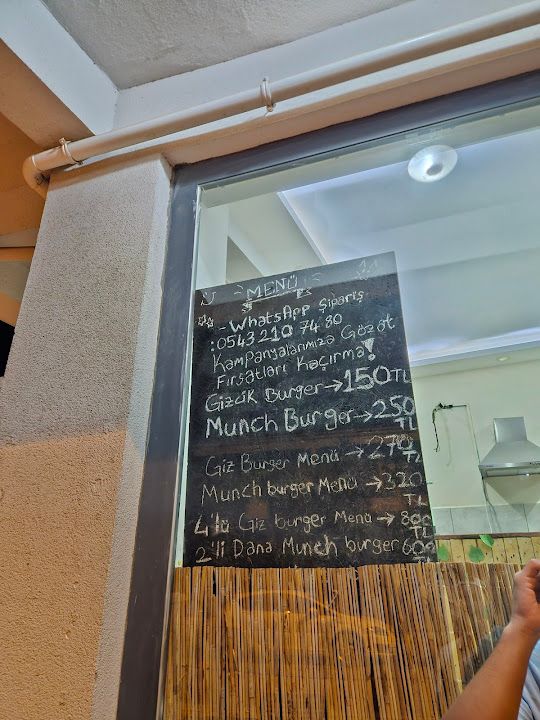 MENÜ
- WhatsApp Sipariş
: 0543 210 74 80
Kampanyalarımıza Gözat
Fırsatları Kaçırma!
Gizcik Burger → 150 TL
Munch Burger → 250 TL
Giz Burger Menü → 270 TL
Munch burger Menü → 320 TL
4'lü Giz burger Menü → 800 TL
2'li Dana Munch burger 600